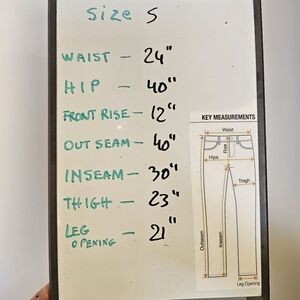 Size S
WAIST - 24"
HIP - 40"
FRONT RISE - 12"
OUT SEAM - 40"
INSEAM - 30"
THIGH - 23"
LEG OPENING - 21"
KEY MEASUREMENTS
Waist
Rise
Hips
Thigh
Outseam
Inseam
Leg Opening